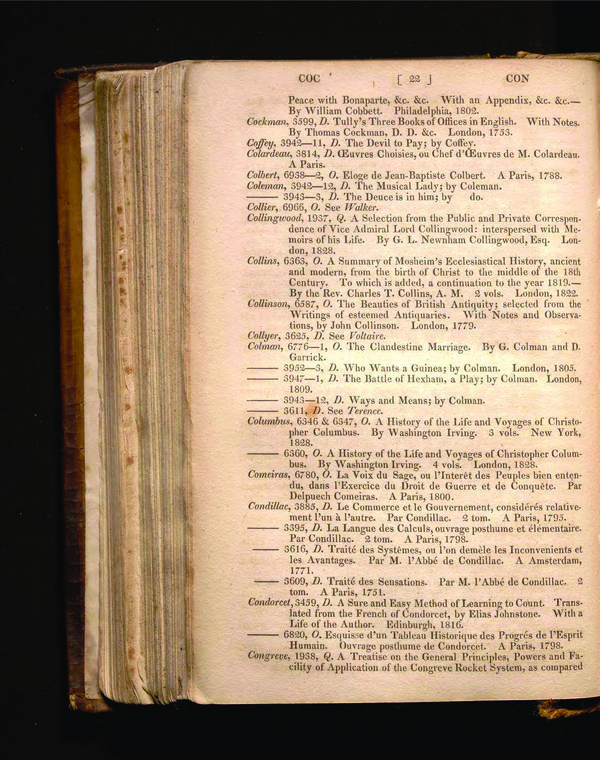 COC [ 22 ] CON
Peace with Bonaparte, &c. &c. With an Appendix, &c. &c.—
By William Cobbett. Philadelphia, 1802.
Cockman, 3599, D. Tully's Three Books of Offices in English. With Notes.
By Thomas Cockman, D. D. &c. London, 1753.
Coffey, 3942—11, D. The Devil to Pay; by Coffey.
Colardeau, 3814, D. Œuvres Choisies, ou Chef d'Œuvres de M. Colardeau.
A Paris.
Colbert, 6938—2, O. Eloge de Jean-Baptiste Colbert. A Paris, 1788.
Coleman, 3942—12, D. The Musical Lady; by Coleman.
——— 3943—3, D. The Deuce is in him; by do.
Collier, 6966, O. See Walker.
Collingwood, 1937, Q. A Selection from the Public and Private Correspon-
dence of Vice Admiral Lord Collingwood: interspersed with Me-
moirs of his Life. By G. L. Newnham Collingwood, Esq. Lon-
don, 1828.
Collins, 6363, O. A Summary of Mosheim's Ecclesiastical History, ancient
and modern, from the birth of Christ to the middle of the 18th
Century. To which is added, a continuation to the year 1819.—
By the Rev. Charles T. Collins, A. M. 2 vols. London, 1822.
Collinson, 6587, O. The Beauties of British Antiquity; selected from the
Writings of esteemed Antiquaries. With Notes and Observa-
tions, by John Collinson. London, 1779.
Collyer, 3625, D. See Voltaire.
Colman, 6776—1, O. The Clandestine Marriage. By G. Colman and D.
Garrick.
——— 3952—3, D. Who Wants a Guinea; by Colman. London, 1805.
——— 3947—1, D. The Battle of Hexham, a Play; by Colman. London,
1809.
——— 3943—12, D. Ways and Means; by Colman.
——— 3611, D. See Terence.
Columbus, 6346 & 6347, O. A History of the Life and Voyages of Christo-
pher Columbus. By Washington Irving. 3 vols. New York,
1828.
——— 6360, O. A History of the Life and Voyages of Christopher Colum-
bus. By Washington Irving. 4 vols. London, 1828.
Comeiras, 6780, O. La Voix du Sage, ou l'Interêt des Peuples bien enten-
du, dans l'Exercice du Droit de Guerre et de Conquète. Par
Delpuech Comeiras. A Paris, 1800.
Condillac, 3885, D. Le Commerce et le Gouvernement, considérés relative-
ment l'un à l'autre. Par Condillac. 2 tom. A Paris, 1795.
——— 3395, D. La Langue des Calculs, ouvrage posthume et élémentaire.
Par Condillac. 2 tom. A Paris, 1798.
——— 3616, D. Traité des Systêmes, ou l'on demèle les Inconvenients et
les Avantages. Par M. l'Abbé de Condillac. A Amsterdam,
1771.
——— 3609, D. Traité des Sensations. Par M. l'Abbé de Condillac. 2
tom. A Paris, 1751.
Condorcet, 3459, D. A Sure and Easy Method of Learning to Count. Trans-
lated from the French of Condorcet, by Elias Johnstone. With a
Life of the Author. Edinburgh, 1816.
——— 6820, O. Esquisse d'un Tableau Historique des Progrés de l'Esprit
Humain. Ouvrage posthume de Condorcet. A Paris, 1798.
Congreve, 1938, Q. A Treatise on the General Principles, Powers and Fa-
cility of Application of the Congreve Rocket System, as compared